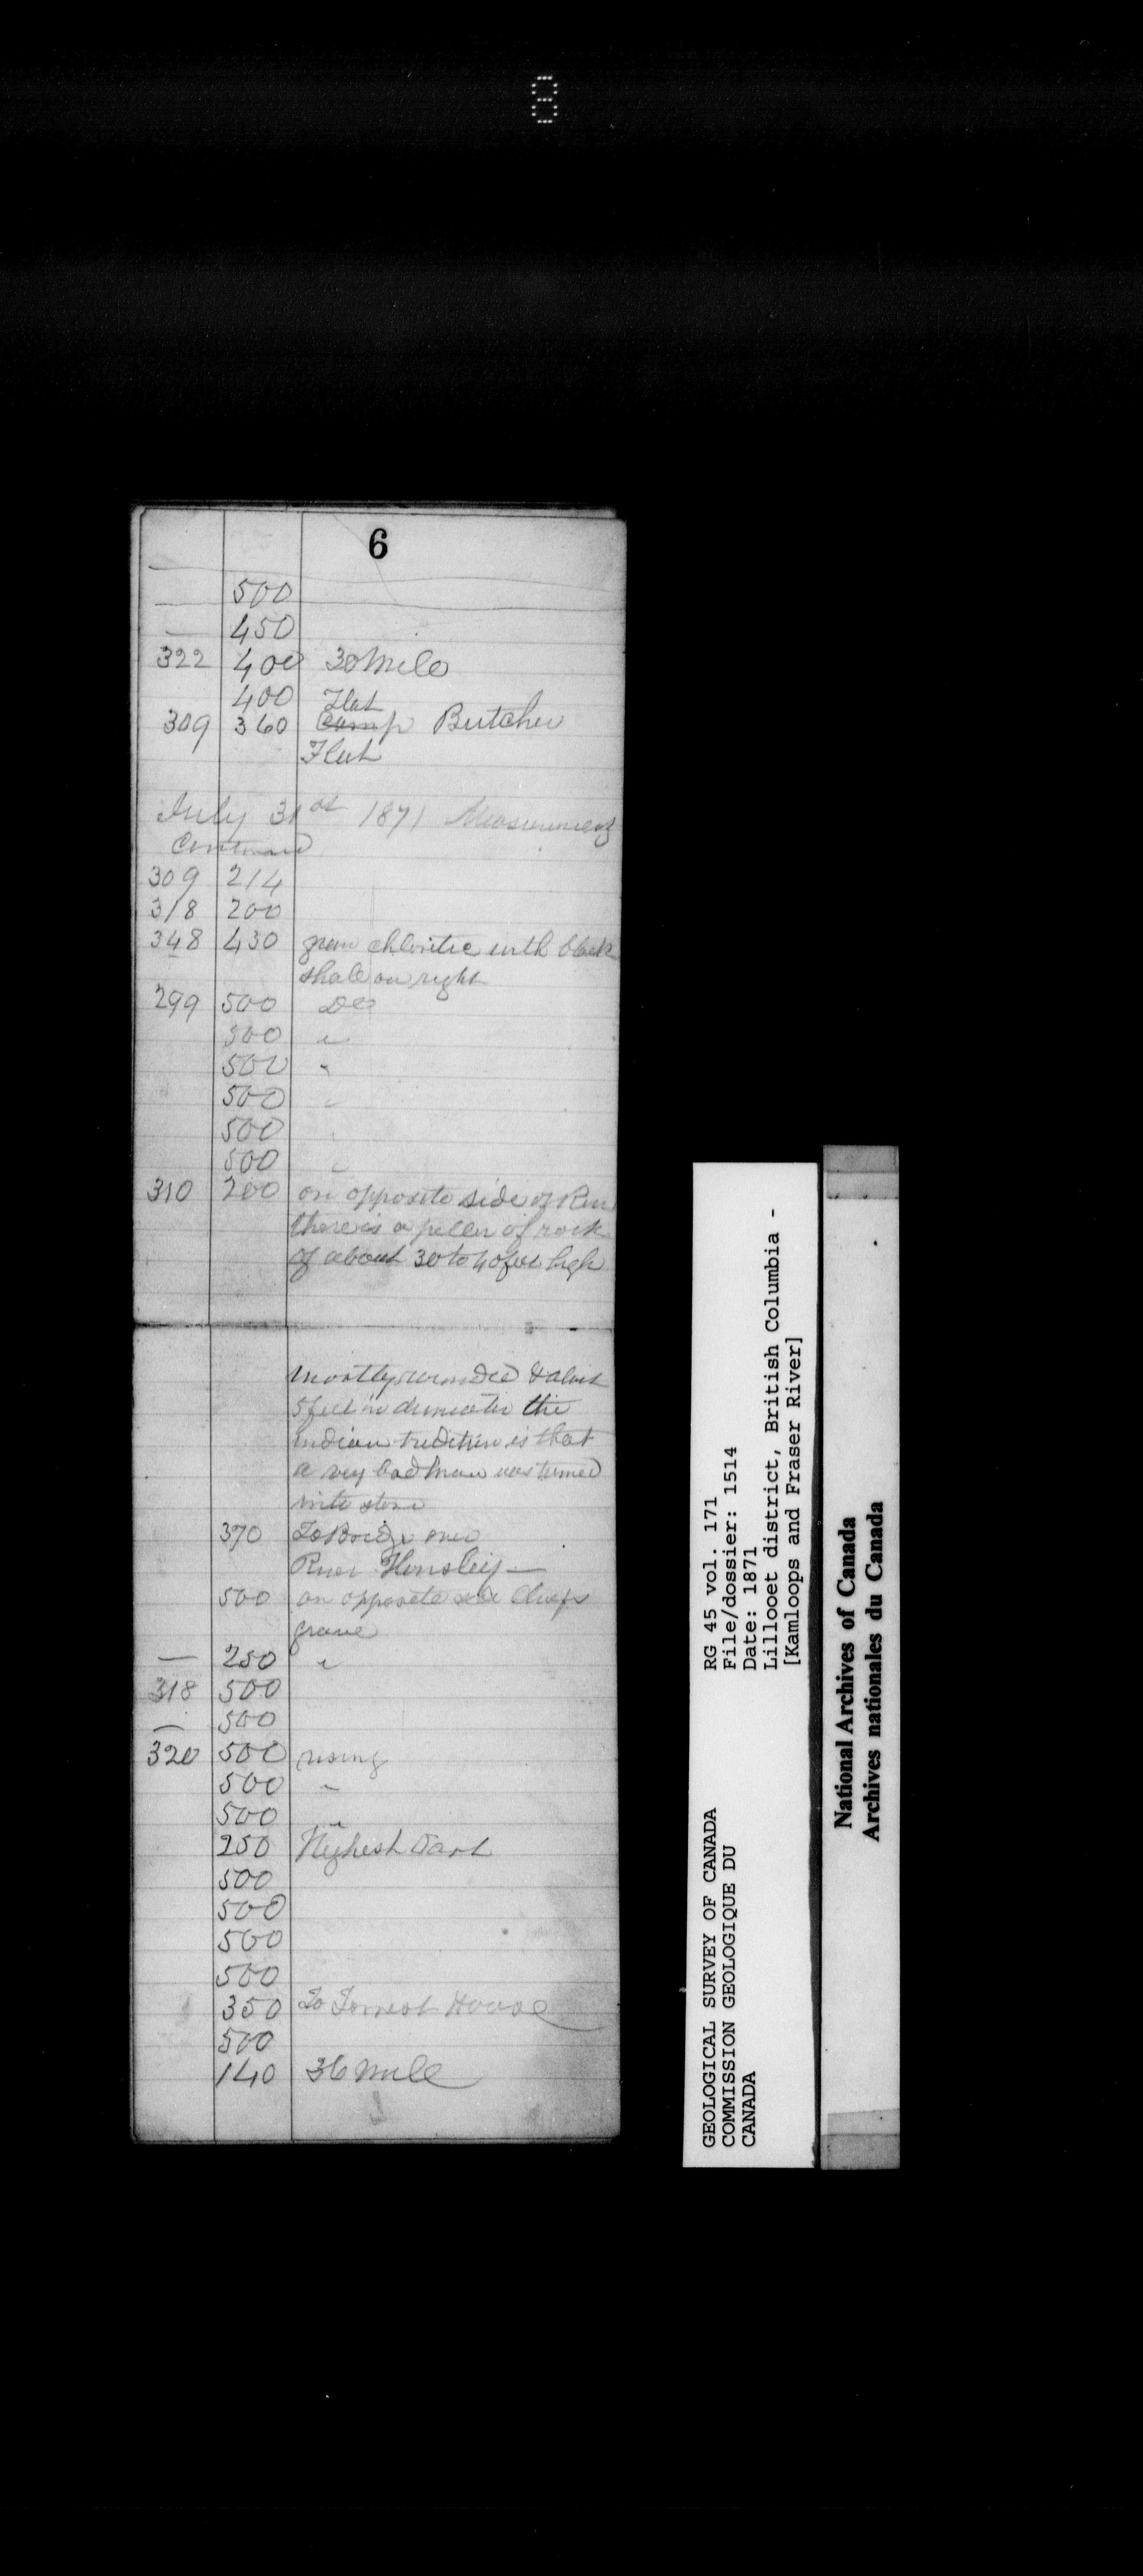 8
6
500
450
322 400 30 Mile
400 Flat
309 360 Camp Butcher
Flat
July 31st 1871 Measurement
Continued
309 214
318 200
348 430 green chloritic with black
shale on right
299 500 Do
500 "
500 "
500 "
500 "
500 "
310 200 on opposite side of River
there is a piller of rock
of about 30 to 40 feet high
mostly rounded & about
5 feet in diameter the
indian tradition is that
a very bad man was turned
into stone
370 To Bridge over
River
500 on opposite side Chiefs
grave
— 250 "
318 500
— 500
320 500 rising
500 "
500 "
250 Highest part
500
500
500
500
350 To Forrest House
500
140 36 Mile
GEOLOGICAL SURVEY OF CANADA
COMMISSION GEOLOGIQUE DU
CANADA
RG 45 vol. 171
File/dossier: 1514
Date: 1871
Lillooet district, British Columbia -
[Kamloops and Fraser River]
National Archives of Canada
Archives nationales du Canada